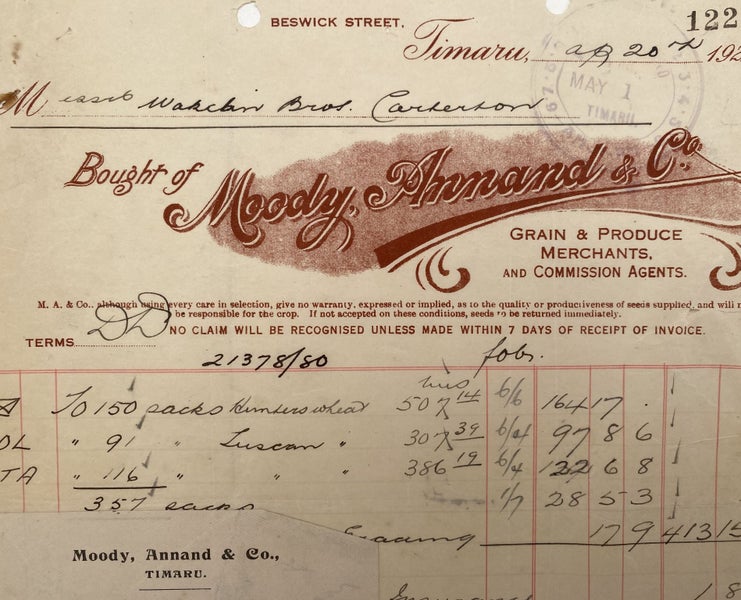 BESWICK STREET.
122
Timaru, ap 20th 192
MAY 1
TIMARU
Messrs Wakelin Bros. Carterton
Bought of Moody, Annand & Co.
GRAIN & PRODUCE
MERCHANTS,
AND COMMISSION AGENTS.
M. A. & Co., although using every care in selection, give no warranty, expressed or implied, as to the quality or productiveness of seeds supplied, and will n
be responsible for the crop. If not accepted on these conditions, seeds to be returned immediately.
NO CLAIM WILL BE RECOGNISED UNLESS MADE WITHIN 7 DAYS OF RECEIPT OF INVOICE.
TERMS DD
21378/80 fobs.
bus
To 150 sacks Hunters wheat 507 14 6/6 164 17 .
OL " 91 " Tuscan " 307 39 6/4 97 8 6
TA " 116 " " " 386 19 6/4 122 6 8
357 sacks 1/7 28 5 3
17 9 413 15
Moody, Annand & Co.,
TIMARU.
Insurance 1 8